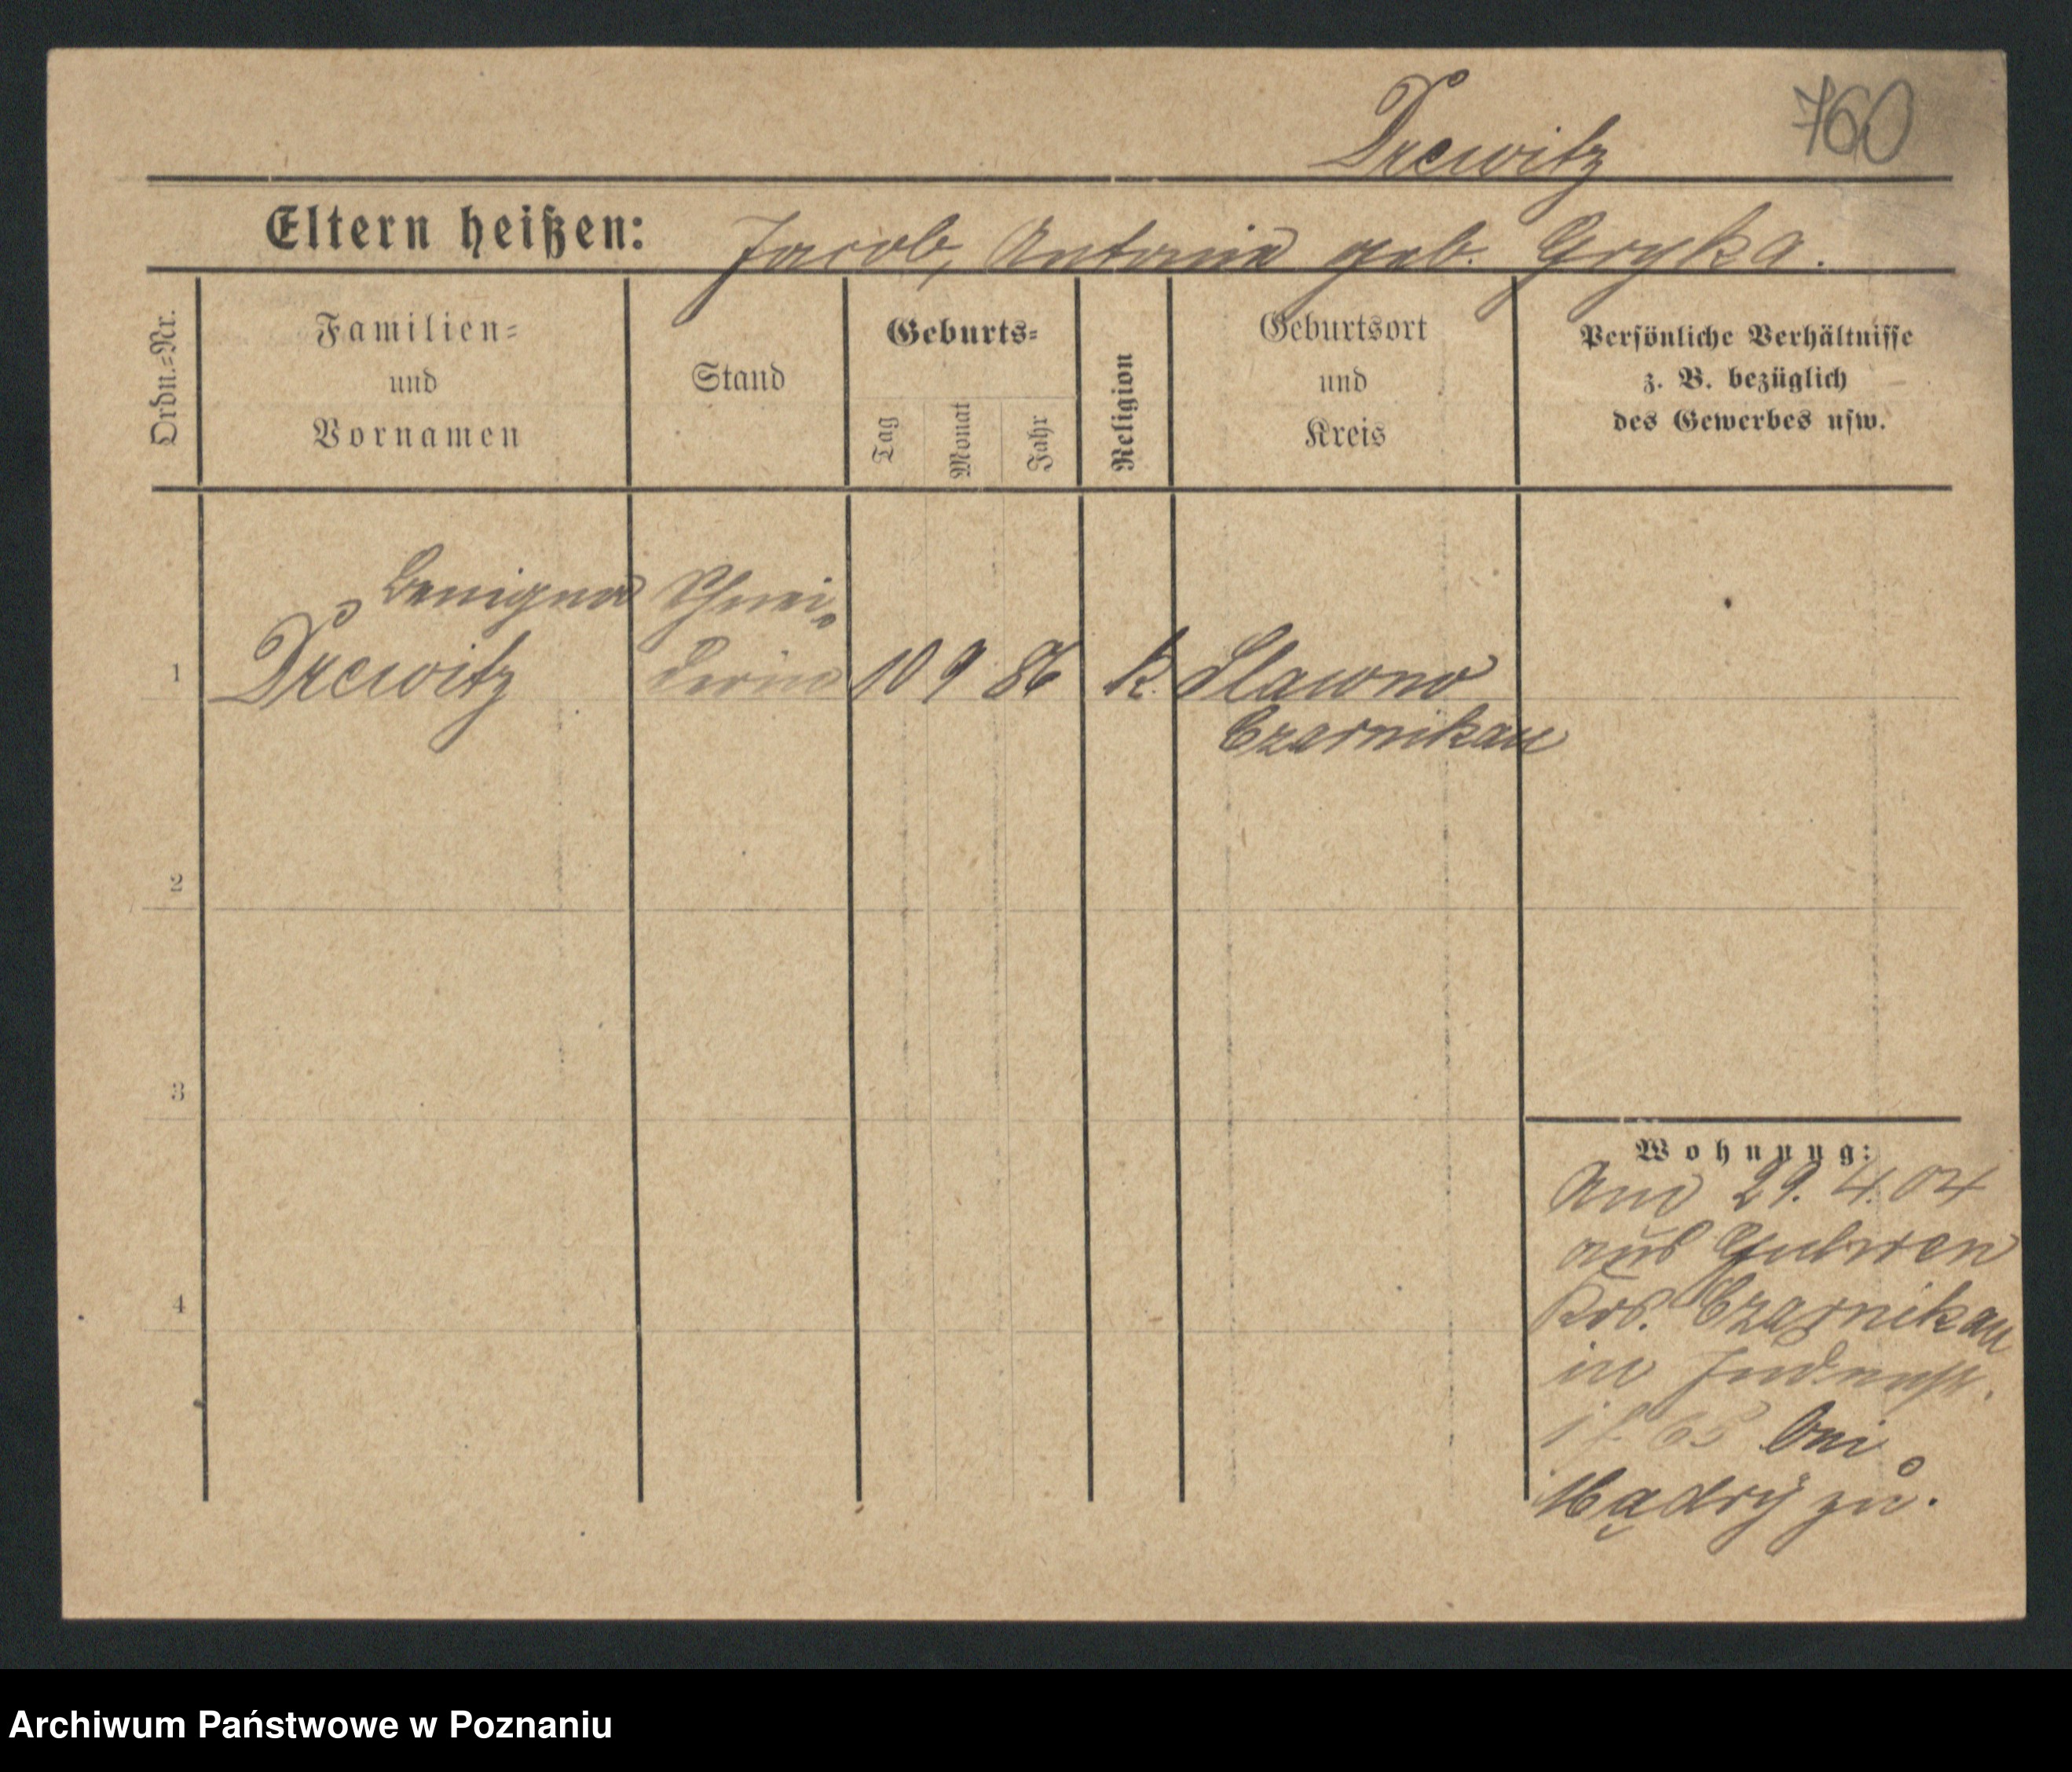 Drewitz 760
Eltern heißen: Jacob, Antonie geb. Gryka.
Ordn.=Nr.
Familien=
und
Vornamen
Stand
Geburts=
Tag
Monat
Jahr
Religion
Geburtsort
und
Kreis
Persönliche Verhältnisse
z. B. bezüglich
des Gewerbes usw.
Benigna Schnei-
1 Drewitz derin 10 9 86 k. Slawno
Czarnikau
2
3
4
Wohnung:
Am 29. 4. 04
aus
Krs. Czarnikau
in
bei
Mądry zu.
Archiwum Państwowe w Poznaniu